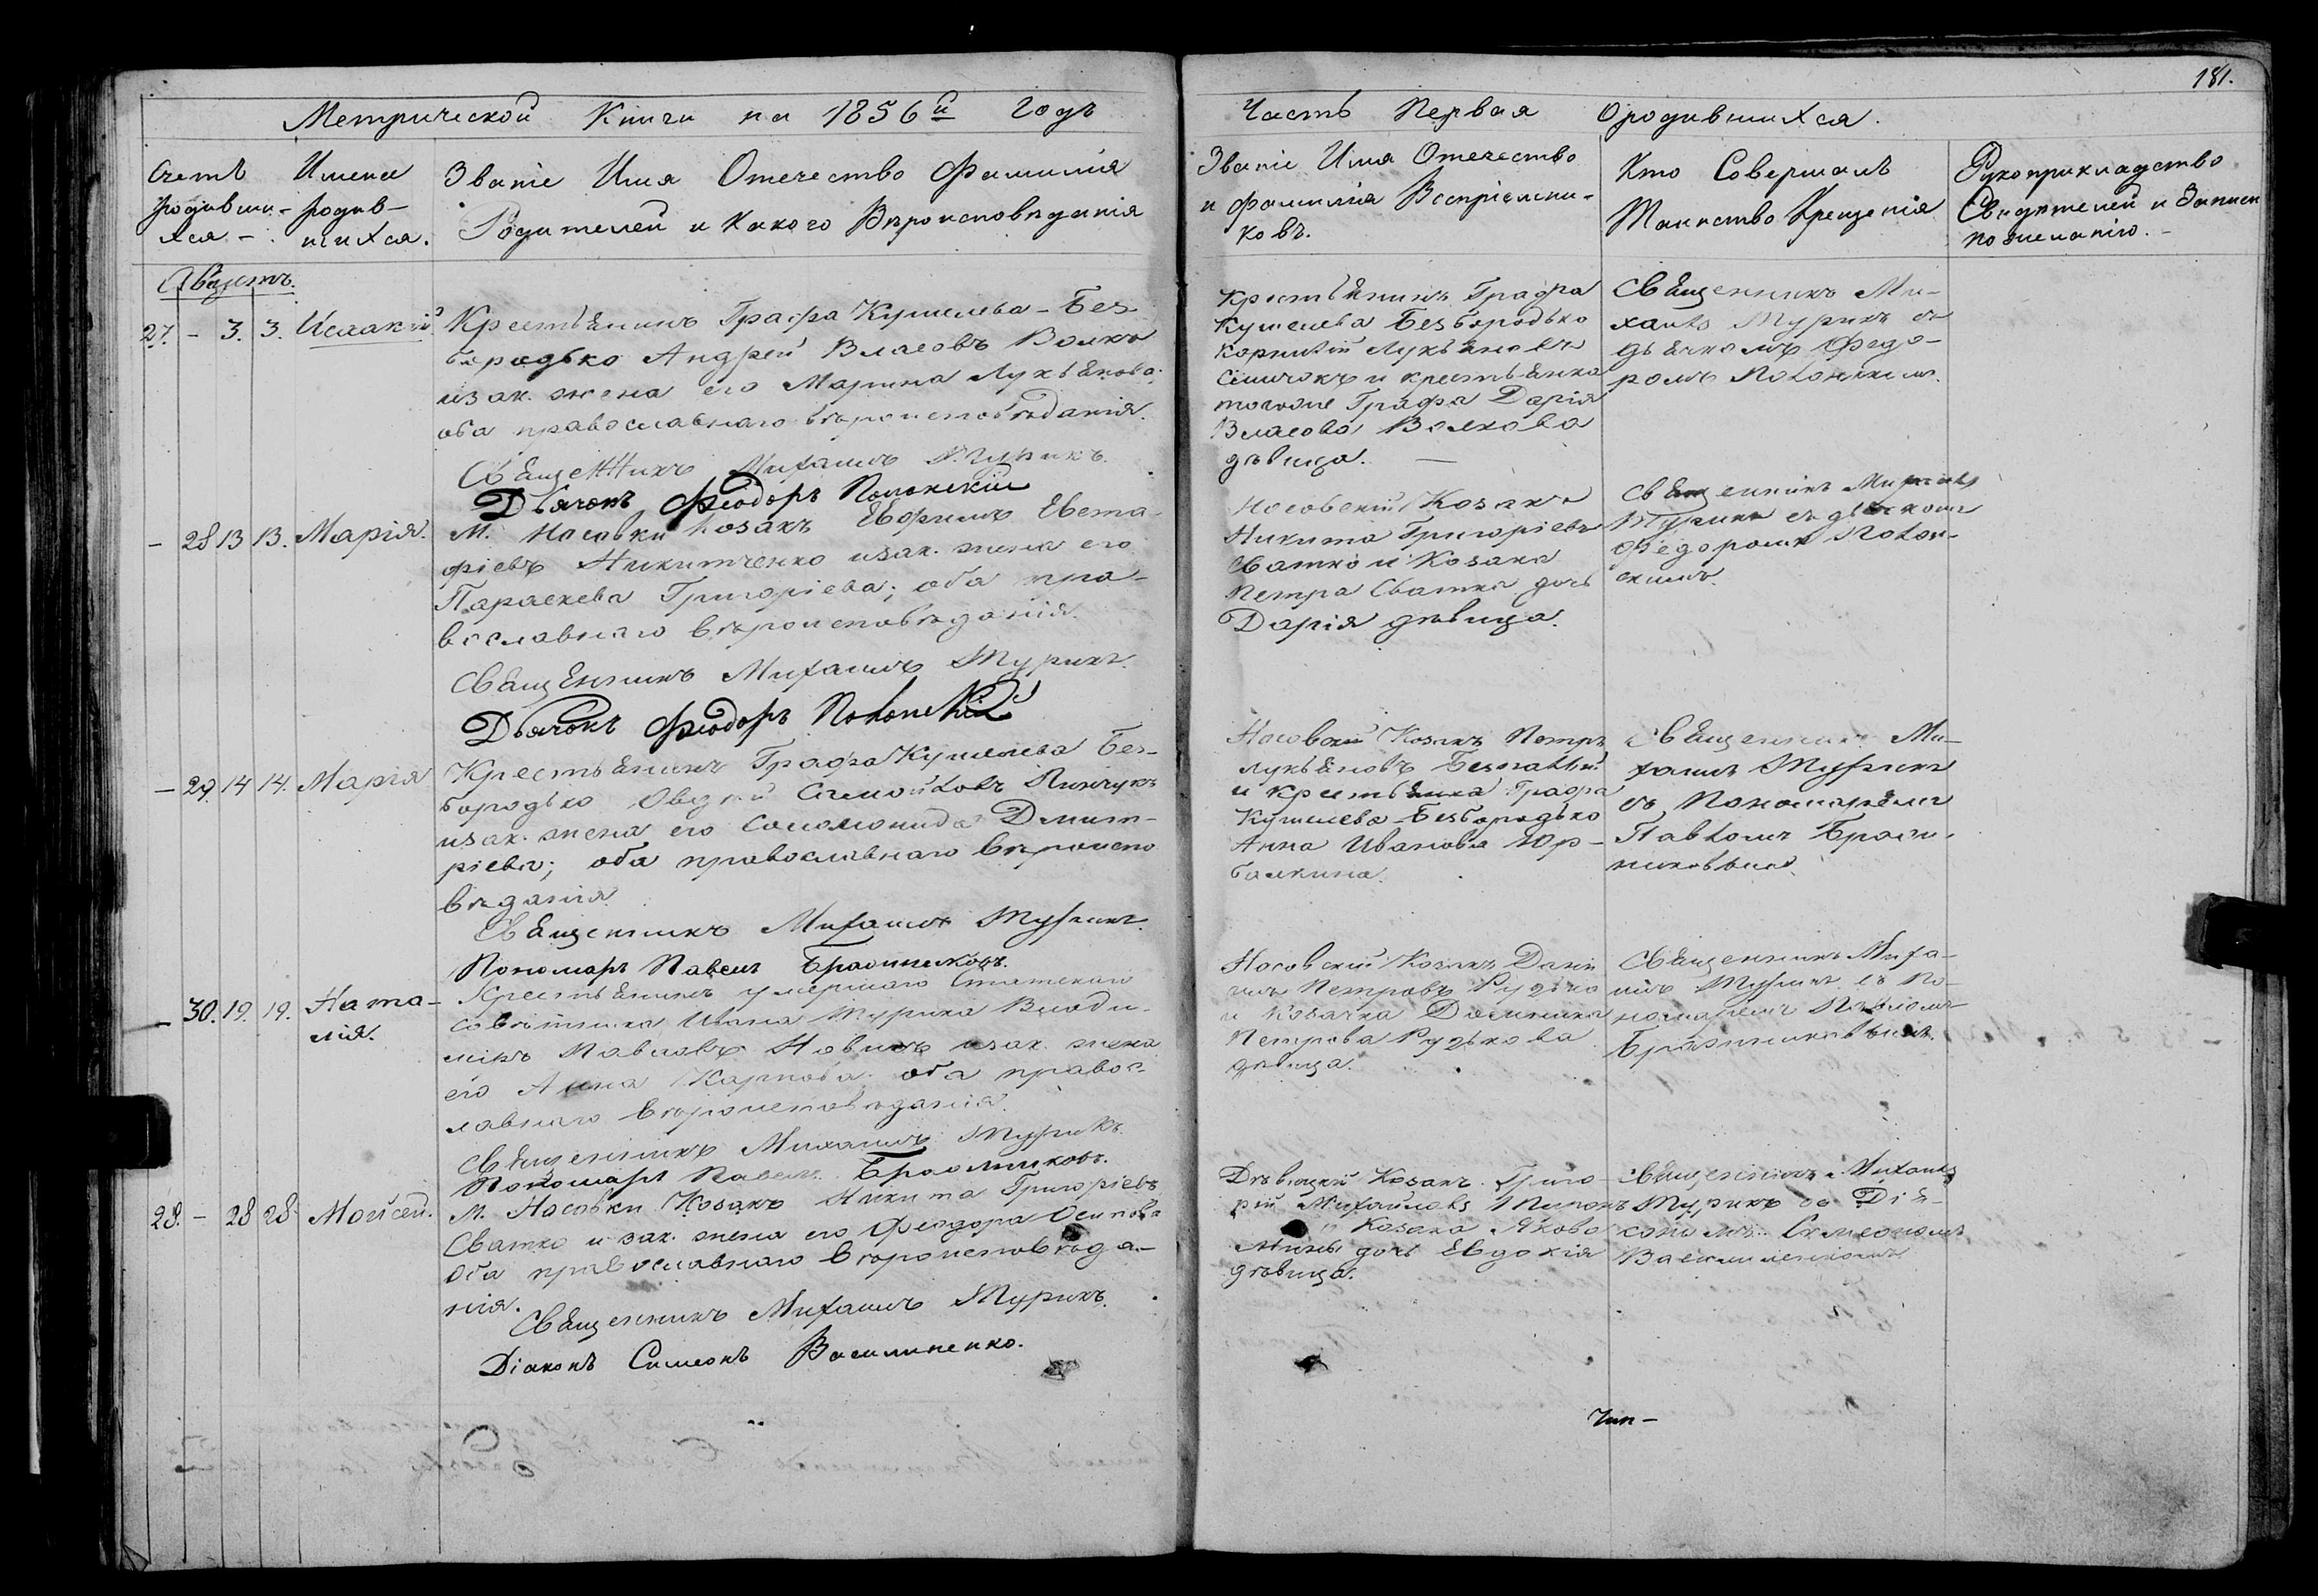 181.
Метрической Книги на 1856й годъ
Часть Первая О родившихся.
Счетъ
родивши-
хся -
Имена
родив-
шихся.
Званіе Имя Отечество Фамилія
Родителей и Какого Вѣроисповѣданія
Званіе Имя Отечество
и Фамилія Воспріемни-
ковъ.
Кто Совершалъ
Таинство Крещенія
Рукоприкладство
Свидѣтелей и Записи
по желанію. -
Августъ.
27. - 3. 3. Исаакій
Крестьянинъ Графа Кушелева-Без-
бородько Андрей Власовъ Волкъ
изак. жена его Марина Лукьянова;
оба православнаго вѣроисповѣданія.
Священникъ Михаилъ Турикъ.
Дьячокъ Феодоръ Полонскій
Крестьянинъ Графа
Кушелева Безбородько
Корнилій Лукьяновъ
и крестьянка
тогоже Графа Дарія
Власова Волкова
дѣвица. —
Священникъ Ми-
хаилъ Турикъ съ
дьячкомъ Федо-
ромъ Полонскимъ.
- 28 13 13. Марія.
М. Носовки Козакъ Ефримъ Евста-
фіевъ Никитченко изак. жена его
Параскева Григоріева; оба пра-
вославнаго вѣроисповѣданія.
Священникъ Михаилъ Турикъ.
Дьячокъ Феодоръ Полонскій
Носовскій Козакъ
Никита Григоріевъ
Сватко и Козака
Петра Сватка дочь
Дарія дѣвица.
Священникъ Михаилъ
Турикъ съ дьячкомъ
Федоромъ Полон-
скимъ.
- 29. 14 14. Марія
Крестьянинъ Графа Кушелева Без-
бородько Овдѣй Самойловъ Пинчукъ
изак. жена его Соломонида Димит-
ріева; оба православнаго вѣроиспо
вѣданія.
Священникъ Михаилъ Турикъ.
Пономарь Павелъ Бражниковъ.
Носовскій Козакъ Петръ
Лукьяновъ Безпалый
и Крестьянка Графа
Кушелева-Безбородько
Анна Иванова Юр-
балкина.
Священникъ Ми-
хаилъ Турикъ
съ Пономарёмъ
Павломъ Браж-
никовымъ.
- 30. 19. 19. Ната-
лія.
Крестьянинъ умершаго Статскаго
совѣтника Ивана Турика Влади-
міръ Павловъ Новикъ изак. жена
его Анна Карпова; оба правос-
лавнаго вѣроисповѣданія.
Священникъ Михаилъ Турикъ
Пономарь Павелъ Бражниковъ.
Носовскій Козакъ Дани
илъ Петровъ Рудько
и Козачка Доминика
Петрова Рудькова
дѣвица.
Священникъ Миха-
илъ Турикъ съ По-
номаремъ Павломъ
Бражниковымъ.
28. - 28 28. Мойсей.
М. Носовки Козакъ Никита Григоріевъ
Сватко и зак. жена его Феодора Осипова
Оба православнаго вѣроисповѣда-
нія.
Священникъ Михаилъ Турикъ.
Діаконъ Симеонъ Василиненко.
Дѣвицкій Козакъ Григо
рій Михайловъ
и Козака Якова
Мины дочь Евдокія
дѣвица.
Священникъ Михаилъ
Турикъ съ Діа-
кономъ Симеономъ
Василиненкомъ
Чин-